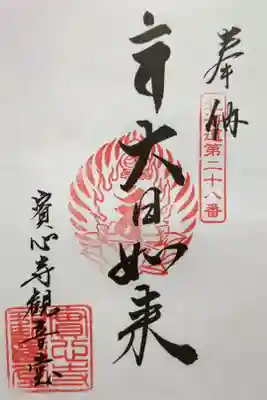 奉納
北海道第二十八番
大日如来
寳心寺観音堂